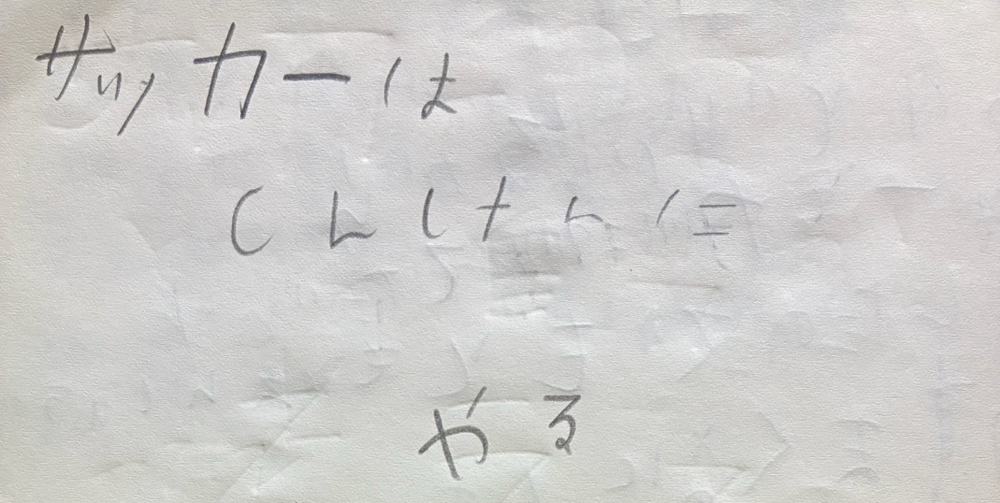 サッカーは
しんけんに
やる